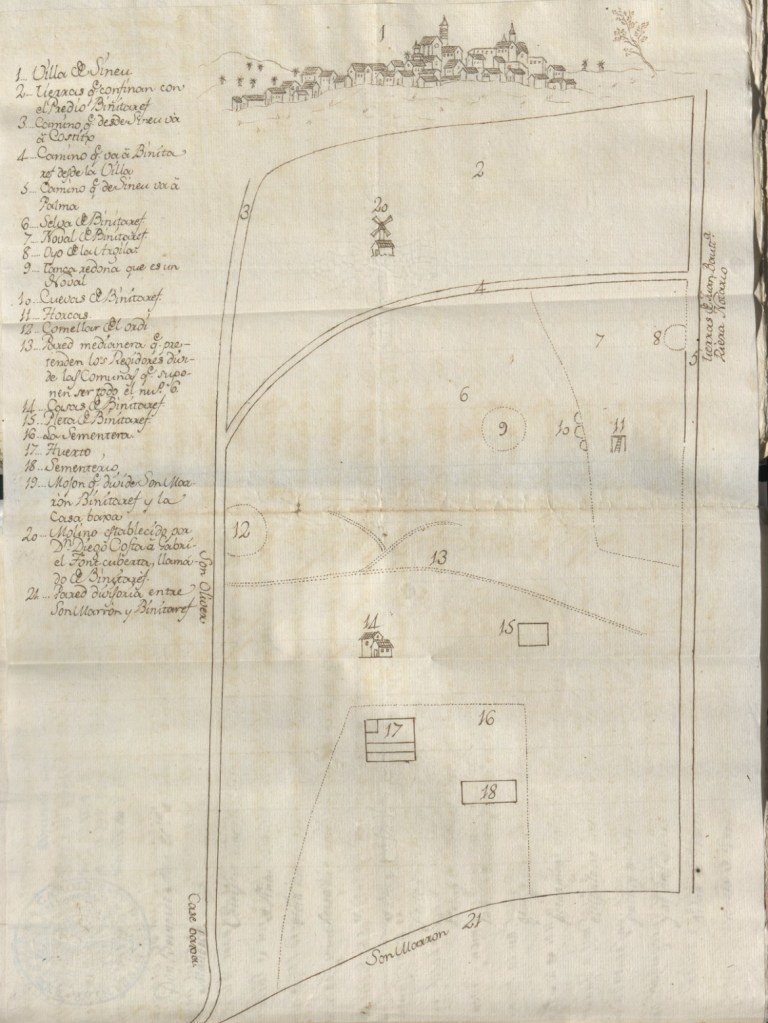 1.. Villa de Sineu
2.. Tierras q.e confinan con
el Predio Binitaref
3.. Camino q.e desde Sineu va
à Costitx
4.. Camino q.e va à Binita
ref desde la Villa
5.. Camino q.e de Sineu va à
Palma
6.. Selva de Binitaref
7.. Noval de Binitaref
8.. Oyo de las Aguas
9.. Tanca redona que es un
Noval
10.. Cuevas de Binitaref
11.. Horcas
12.. Comellar del ordi
13.. Pared medianera q.e pre-
tenden los Regidores divi-
de las Comunas q.e supo-
nen ser todo el nu.o 6.
14.. Casas de Binitaref
15.. Pleta de Binitaref
16.. La Sementera
17.. Huerto
18.. Sementerio
19.. Moson q.e divide Son Mar-
rón Binitaref y la
Casa baxa
20.. Molino establecido por
D.n Diego Costa à Gabri-
el Font-cuberta, llama-
do de Binitaref.
21... Pared divisoria entre
Son Marrón y Binitaref
1
2
3
20
4
Tierras de Juan Baut.a
Riera Notario
7
8
5
6
9
10
11
12
13
Son Oliver
14
15
16
17
18
Case baxa
21
Son Marron